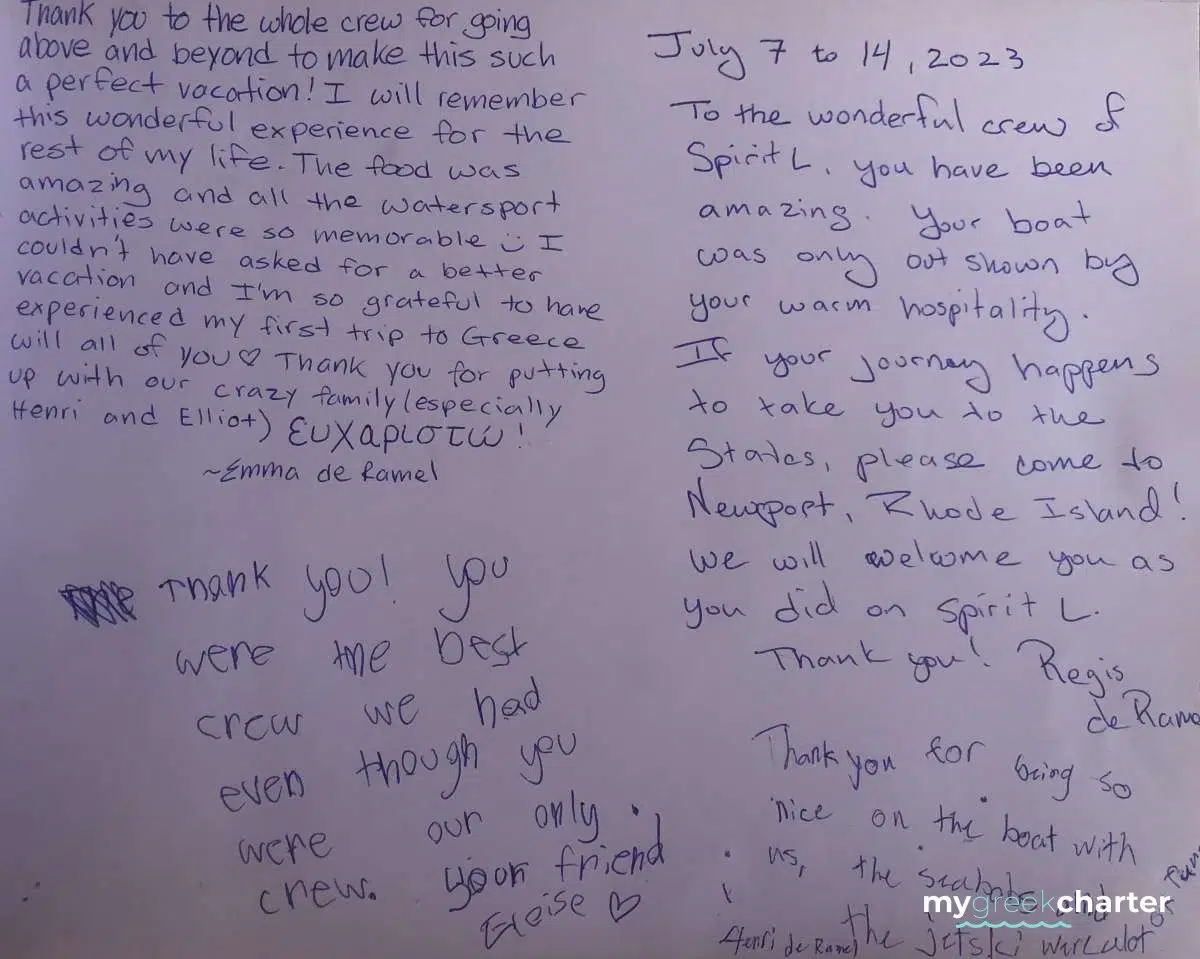 Thank you to the whole crew for going
above and beyond to make this such
a perfect vacation! I will remember
this wonderful experience for the
rest of my life. The food was
amazing and all the watersport
activities were so memorable :) I
couldn't have asked for a better
vacation and I'm so grateful to have
experienced my first trip to Greece
will all of you♡ Thank you for putting
up with our crazy family (especially
Henri and Elliot) ευχαριστώ!
~Emma de Ramel
Thank you! you
were the best
crew we had
even though you
were our only
crew. your friend
Eloise ♡
July 7 to 14, 2023
To the wonderful crew of
Spirit L, you have been
amazing. Your boat
was only out shown by
your warm hospitality.
If your journey happens
to take you to the
States, please come to
Newport, Rhode Island!
We will welcome you as
you did on Spirit L.
Thank you! Regis
de Rame
Thank you for being so
nice on the boat with
us, the seabobs and
the jetski were alot of fun
Henri de Ramel
mygreekcharter